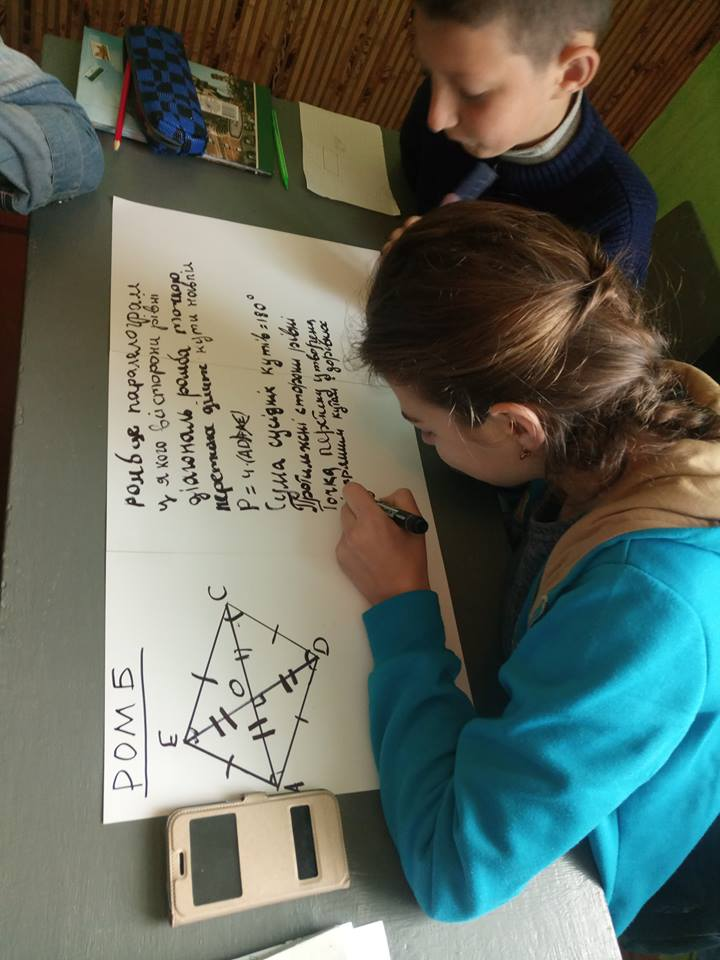 РОМБ
E
C
O
A
D
ромб це паралелограм
у якого всі сторони рівні
діагональ ромба точкою
перетина ділить кути навпіл
P = 4·(AD)
Сума сусідніх кутів = 180°
Протилежні сторони рівні
Точка перетину утворена
прямим кутом